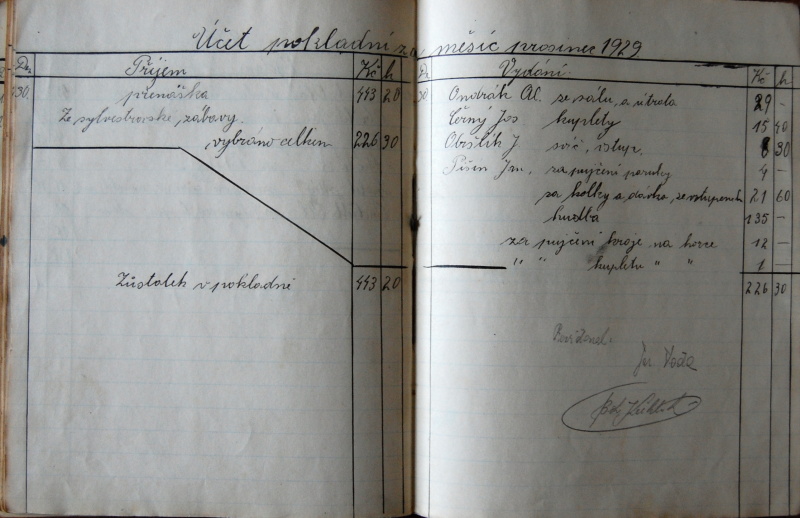 Účet pokladní za měsíc prosinec 1929
Příjem Kč h
30. přenáška 443 20
Ze sylvestrovské zábavy.
vybráno celkem 226 30
Zůstatek v pokladně 443 20
Vydání: Kč h
30. Ondrák Al. ze sálu, a útrata 29 -
Černý Jos kuplety 15 40
J. svíč, vstup. 8 30
Jm, za pujčení paruky 4 -
za kolky a dávka, ze vstupenek 21 60
hudba 135 -
za pujčení kroje na herce 12 -
" " kupletu " " 1 -
226 30